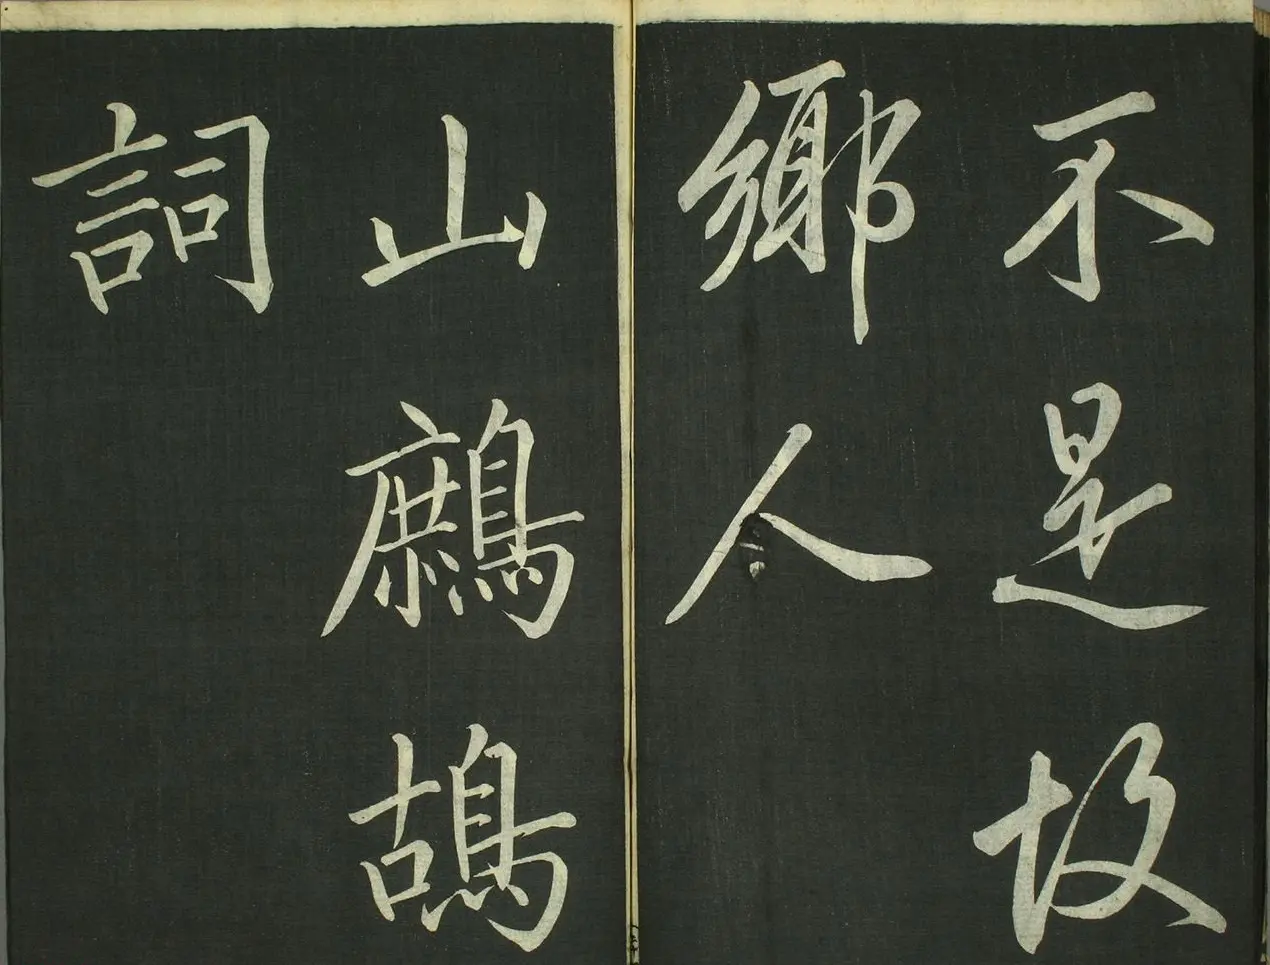 不是故
鄉人
山鷓鴣
詞